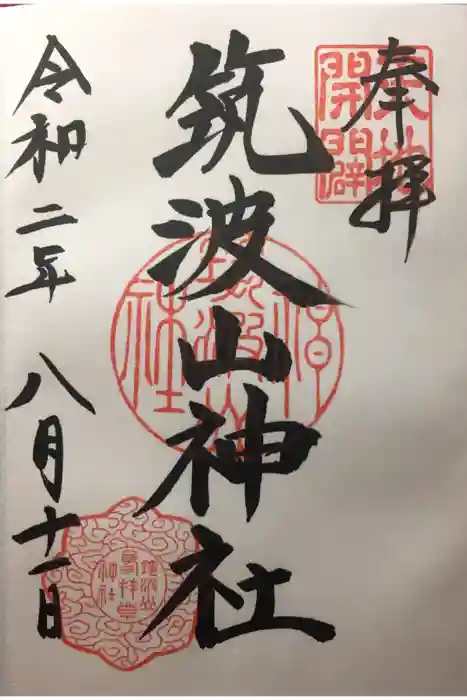 奉拝
天地
開闢
筑波山神社
令和二年八月十一日